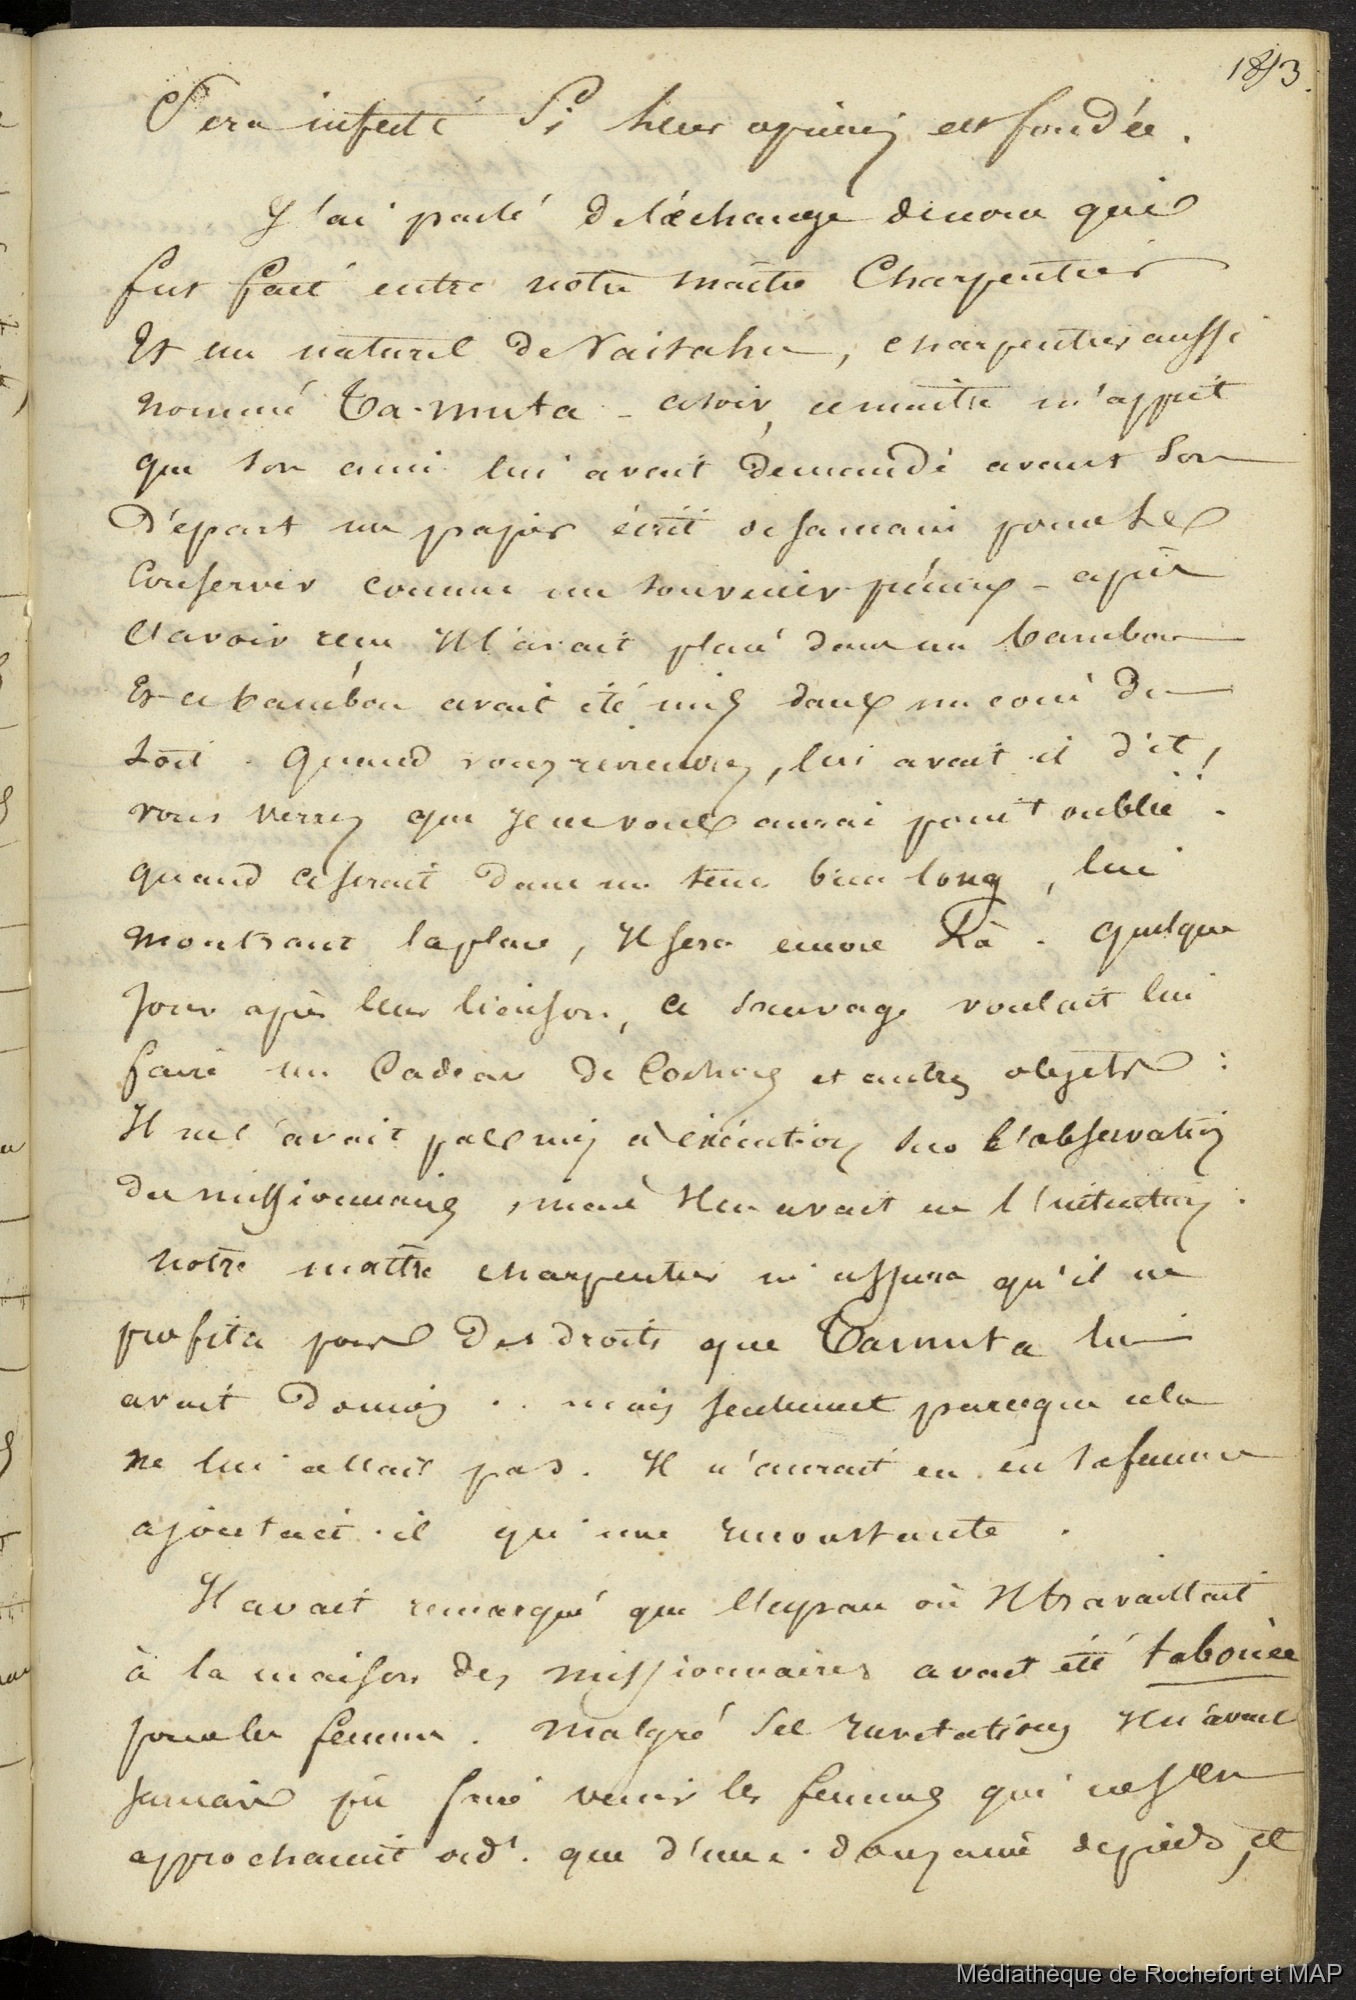 183.
Sera infecté Si leur opinion est fondée.
J'ai parlé de l'échange de nom qui
fut fait entre notre maître Charpentier
Et un naturel de Vaitahu, charpentier aussi
nommé Ta-muta - ce soir, ce maître m'apprit
que son ami lui avait demandé avant son
Départ un papier écrit de sa main pour le
Conserver comme un souvenir précieux - après
l'avoir reçu Il l'avait placé dans un bambou
Et ce bambou avait été mis dans un coin du
toit. Quand vous reviendrez, lui avait-il dit,
vous verrez que Je ne vous aurai point oublié.
quand ce serait dans un tems bien long, lui
montrant la place, Il sera encore Là. Quelques
Jours après leur liaison, ce sauvage voulait lui
faire un Cadeau de Cochons et autres objets :
Il ne l'avait pas mis à exécution sur l'observation
du missionnaire, mais Il en avait eu l'intention.
notre maître charpentier m'assura qu'il ne
profita pas Des droits que Tamuta lui
avait Donnés .. mais seulement parceque cela
ne lui allait pas. Il n'aurait eu en sa femme
ajoutait-il qu'une
Il avait remarqué que l'espace où Il travaillait
à la maison des missionnaires avait été tabouée
pour les femmes. Malgré ses Invitations Il n'avait
Jamais pu faire venir les femmes qui ne s'en
approchaient ord.t que d'une douzaine de pieds, et
Médiathèque de Rochefort et MAP